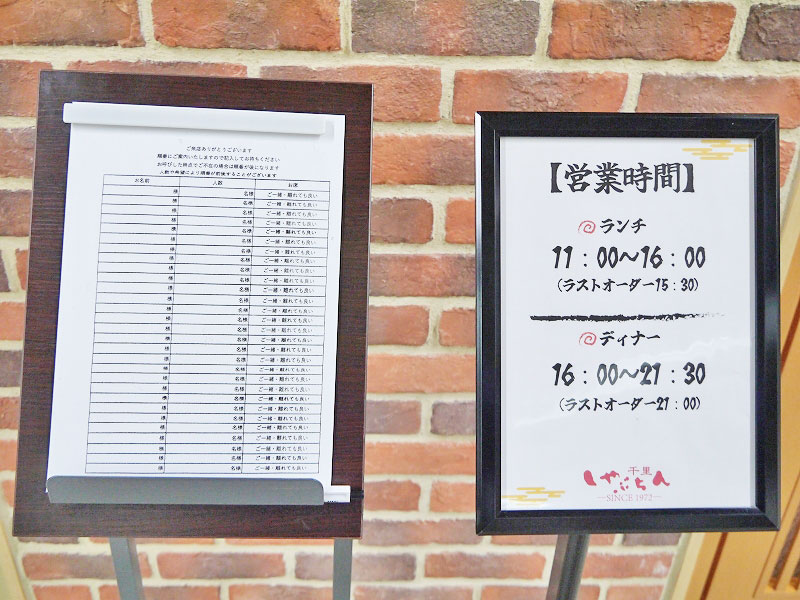 ご来店ありがとうございます
順番にご案内いたしますので記入してお待ちください
お呼びした時点でご不在の場合は順番が後になります
人数や希望により順番が前後することがございます
お名前 人数 お席
様 名様 ご一緒・離れても良い
様 名様 ご一緒・離れても良い
様 名様 ご一緒・離れても良い
様 名様 ご一緒・離れても良い
様 名様 ご一緒・離れても良い
様 名様 ご一緒・離れても良い
様 名様 ご一緒・離れても良い
様 名様 ご一緒・離れても良い
様 名様 ご一緒・離れても良い
様 名様 ご一緒・離れても良い
様 名様 ご一緒・離れても良い
様 名様 ご一緒・離れても良い
様 名様 ご一緒・離れても良い
様 名様 ご一緒・離れても良い
様 名様 ご一緒・離れても良い
様 名様 ご一緒・離れても良い
様 名様 ご一緒・離れても良い
様 名様 ご一緒・離れても良い
様 名様 ご一緒・離れても良い
様 名様 ご一緒・離れても良い
様 名様 ご一緒・離れても良い
様 名様 ご一緒・離れても良い
様 名様 ご一緒・離れても良い
様 名様 ご一緒・離れても良い
様 名様 ご一緒・離れても良い
様 名様 ご一緒・離れても良い
様 名様 ご一緒・離れても良い
様 名様 ご一緒・離れても良い
様 名様 ご一緒・離れても良い
【営業時間】
ランチ
11：00～16：00
（ラストオーダー15：30）
ディナー
16：00～21：30
（ラストオーダー21：00）
千里
しゃぶちん
―SINCE 1972―